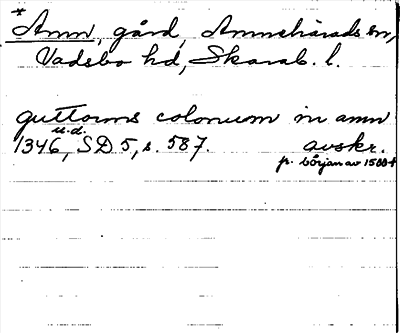 *Amn, gård, Amnehärads sn,
Vadsbo hd, Skarab. l.
guttorms colonum in amn
u.d.
1346, SD 5, s. 587. avskr.
p. början av 1500-t